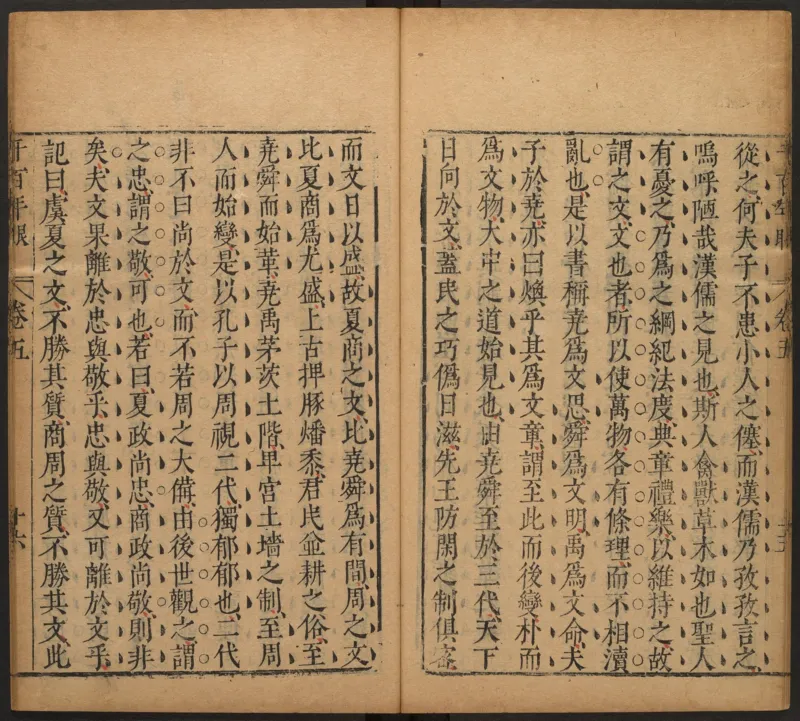 從之何夫子不患小人之僿而漢儒乃孜孜言之
嗚呼陋哉漢儒之見也斯人禽獸草木如也聖人
有憂之乃爲之綱紀法度典章禮樂以維持之故
謂之文文也者所以使萬物各有條理而不相瀆
亂也是以書稱堯爲文思舜爲文明禹爲文命夫
子於堯亦曰煥乎其爲文章謂至此而後變朴而
爲文物大中之道始見也由堯舜至於三代天下
日向於文葢民之巧僞日滋先王防閑之制俱密
而文日以盛故夏商之文比堯舜爲有間周之文
比夏商爲尤盛上古捭豚燔黍君民竝耕之俗至
堯舜而始革堯禹茅茨土階卑宮土墻之制至周
人而始變是以孔子以周視二代獨郁郁也二代
非不曰尚於文而不若周之大備由後世觀之謂
之忠謂之敬可也若曰夏政尚忠商政尚敬則非
矣夫文果離於忠與敬乎忠與敬又可離於文乎
記曰虞夏之文不勝其質商周之質不勝其文此
千百年眼
卷五
十六